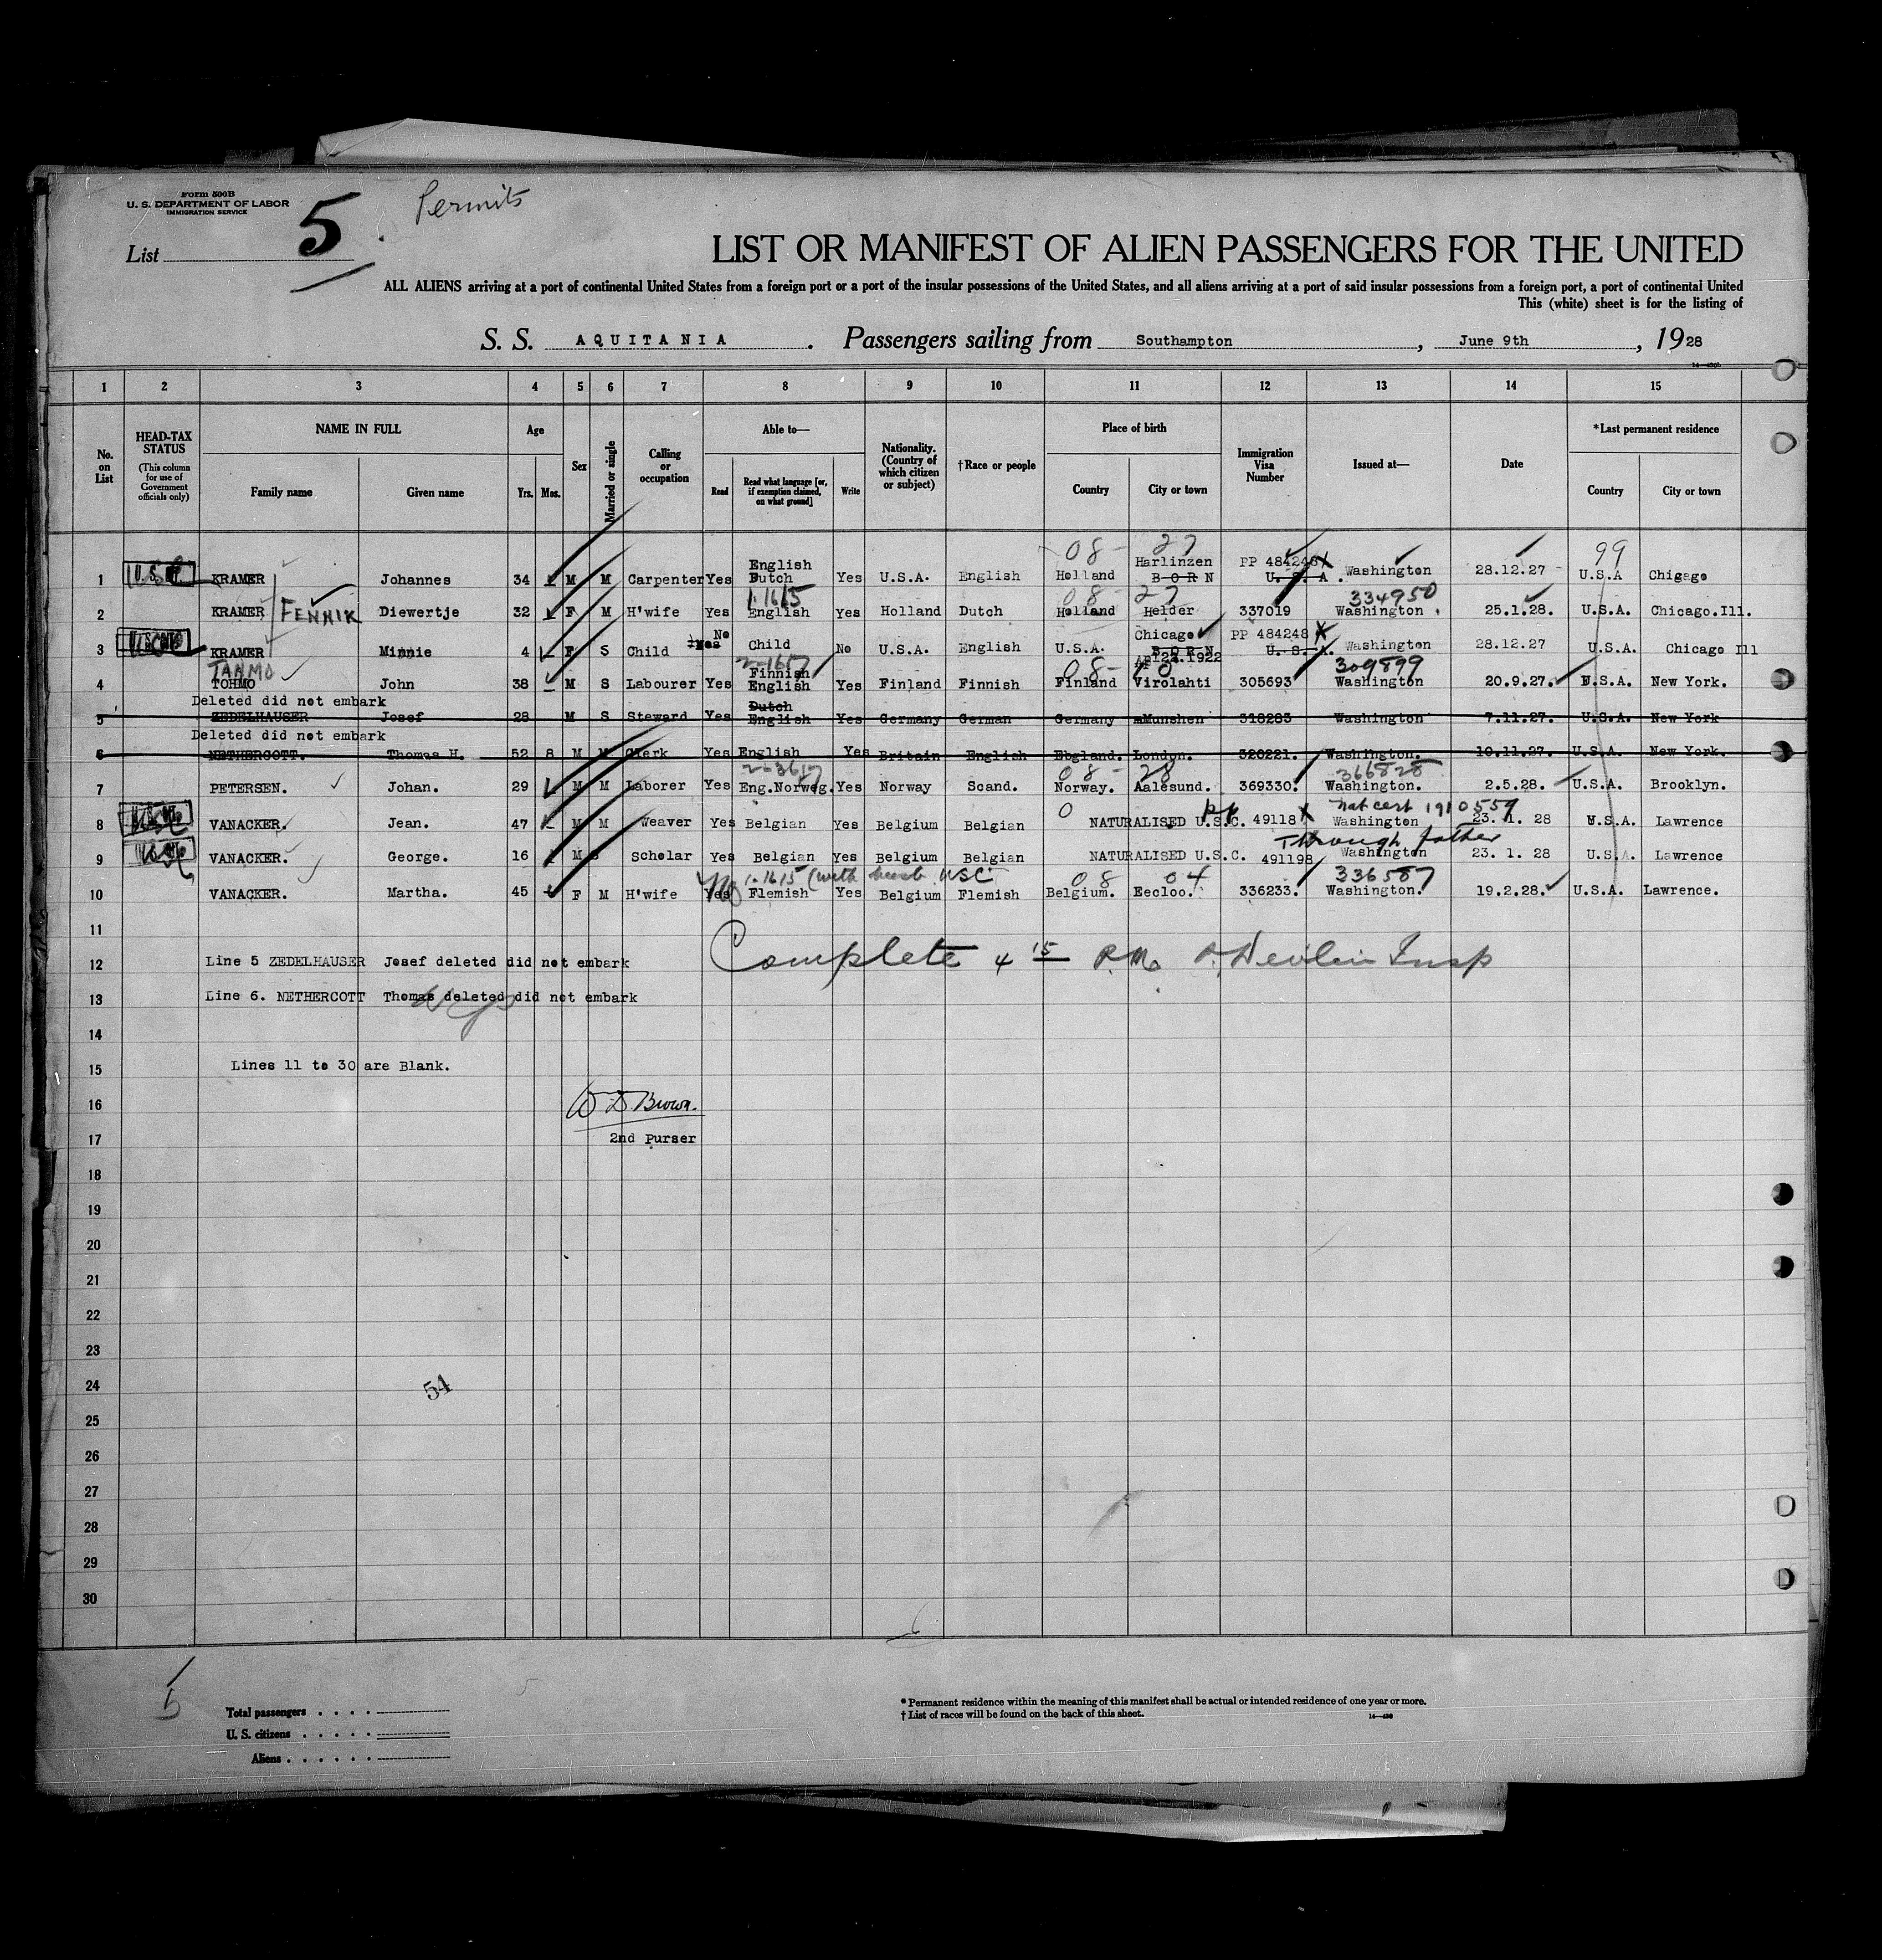 Form 500B
U. S. DEPARTMENT OF LABOR
IMMIGRATION SERVICE
Permits
List 5
LIST OR MANIFEST OF ALIEN PASSENGERS FOR THE UNITED
ALL ALIENS arriving at a port of continental United States from a foreign port or a port of the insular possessions of the United States, and all aliens arriving at a port of said insular possessions from a foreign port, a port of continental United
This (white) sheet is for the listing of
S. S. AQUITANIA. Passengers sailing from Southampton, June 9th, 1928
1 2 3 4 5 6 7 8 9 10 11 12 13 14 15
No. on List
HEAD-TAX STATUS
(This column for use of Government officials only)
NAME IN FULL
Family name Given name
Age
Yrs. Mos.
Sex
Married or single
Calling or occupation
Able to—
Read
Read what language [or, if exemption claimed, on what ground]
Write
Nationality. (Country of which citizen or subject)
†Race or people
Place of birth
Country City or town
Immigration Visa Number
Issued at—
Date
*Last permanent residence
Country City or town
08 - 27 99
English Harlinzen PP 484248
1 KRAMER Johannes 34 M M Carpenter Yes Dutch Yes U.S.A. English Holland B O R N U. S. A. Washington 28.12.27 U.S.A Chigago
1-1615 08- 27 334950
2 KRAMER FENNIK Diewertje 32 F M H'wife Yes English Yes Holland Dutch Holland Helder 337019 Washington. 25.1.28. U.S.A. Chicago.Ill.
No Chicago PP 484248 X
3 KRAMER Minnie 4 F S Child Yes Child No U.S.A. English U.S.A. B O R N U. S. A. Washington 28.12.27 U.S.A. Chicago Ill
TAHMO 2-1617 Finnish 08- 22.1922 309899
4 TOHMO John 38 M S Labourer Yes English Yes Finland Finnish Finland Virolahti 305693 Washington 20.9.27. U.S.A. New York.
Deleted did not embark Dutch
5 ZEDELHAUSER Josef 28 M S Steward Yes English Yes Germany German Germany Munshen 318283 Washington 7.11.27. U.S.A. New York
Deleted did not embark
6 NETHERCOTT. Thomas H. 52 8 M M Clerk Yes English Yes Britain English Ebgland. London. 320221. Washington. 10.11.27. U.S.A. New York.
2-3617 08- 28 366828
7 PETERSEN. Johan. 29 M M Laborer Yes Eng.Norweg. Yes Norway Scand. Norway. Aalesund. 369330. Washington. 2.5.28. U.S.A. Brooklyn.
0 pp X nat cert 1910559
8 VANACKER. Jean. 47 M M Weaver Yes Belgian Yes Belgium Belgian NATURALISED U.S.C. 49118 Washington 23. 1. 28 U.S.A. Lawrence
Through father
9 VANACKER. George. 16 M S Scholar Yes Belgian Yes Belgium Belgian NATURALISED U.S.C. 491198 Washington 23. 1. 28 U.S.A. Lawrence
1-1615 (with husb. USC 08 04 336587
10 VANACKER. Martha. 45 F M H'wife Yes Flemish Yes Belgium Flemish Belgium. Eecloo. 336233. Washington. 19.2.28. U.S.A. Lawrence.
11
12 Line 5 ZEDELHAUSER Josef deleted did not embark Complete 4 15 P.M. Devlin Insp
13 Line 6. NETHERCOTT Thomas deleted did not embark
14
15 Lines 11 to 30 are Blank.
16 W D Brown.
17 2nd Purser
18
19
20
21
22
23
24 54
25
26
27
28
29
30
5
Total passengers . . . .
U. S. citizens . . . . .
Aliens . . . . . .
* Permanent residence within the meaning of this manifest shall be actual or intended residence of one year or more.
† List of races will be found on the back of this sheet.